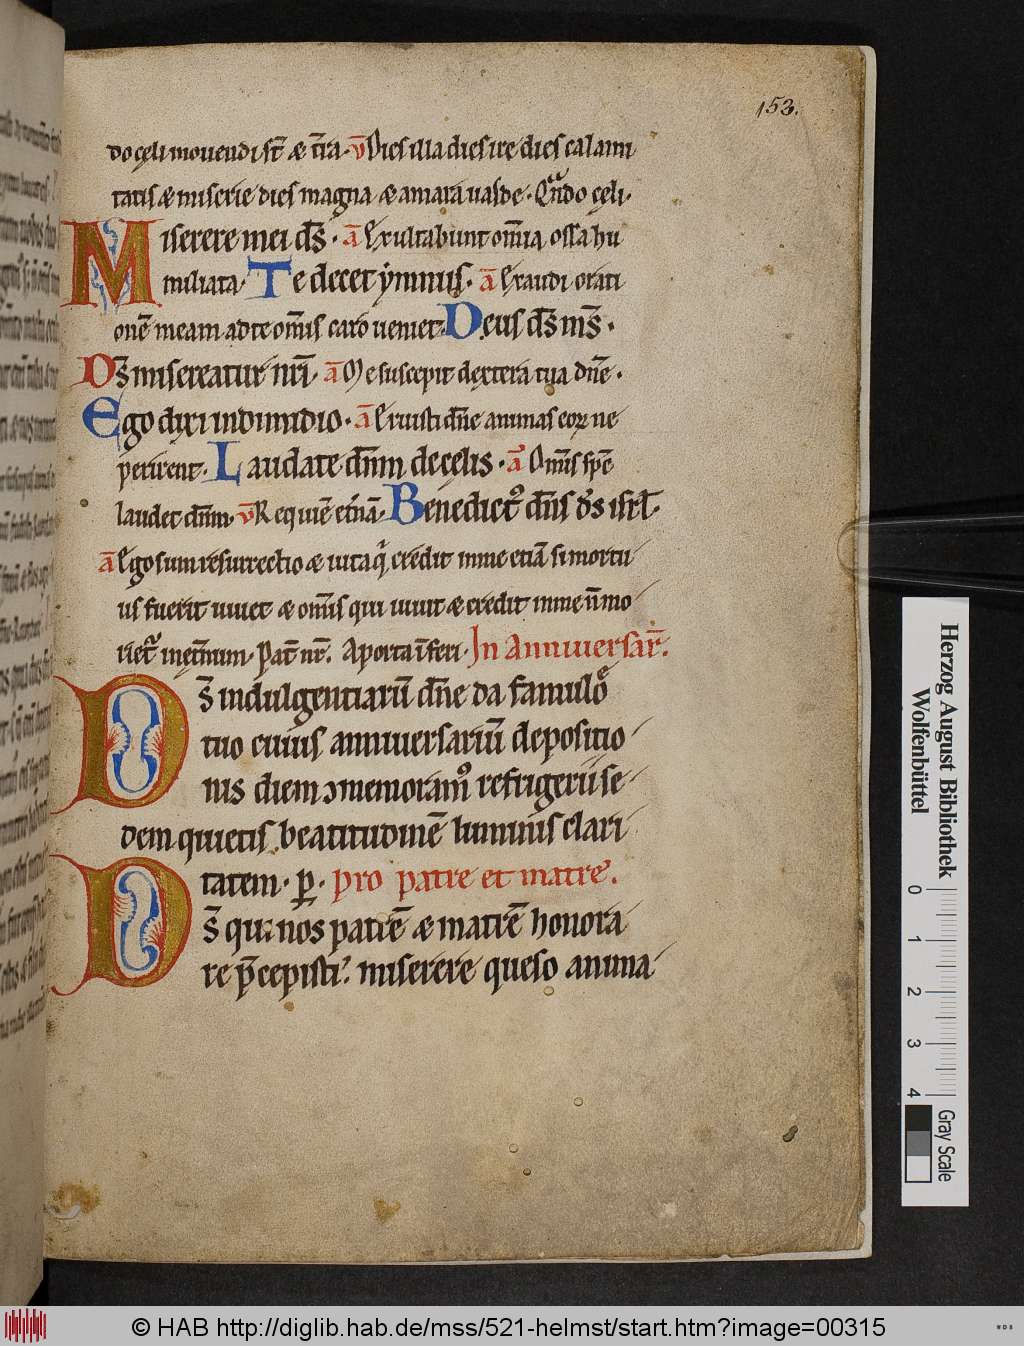 153.
do cęli mouendi st̄ & t̄ra. v̄ Dies illa dies ire dies calami
tatis & miserie dies magna & amara ualde. Qando cęli.
Miserere mei d̄s. ā Exultabunt om̄ia ossa hu
miliata. Te decet ẏmnus. ā Exaudi orati
onē meam ad te om̄is caro ueniet. Deus d̄s m̄s.
D̄s misereatur nr̄i. ā Me suscepit dextera tua dn̄e.
Ego dixi in dimidio. ā Eruisti dn̄e animas eoꝝ ne
perirent. Laudate dn̄m de cęlis. ā Om̄is sp̄c
laudet dn̄m. v̄ Requiē et̄nā. Benedictꝰ dn̄s d̄s isrl̄.
ā Ego sum resurrectio & uita q̄ credit in me etiā si mortu
us fuerit uiuet & om̄is qui uiuit & credit in me n̄ mo
riet᷑ inet̄num. Pat̄ nr̄. A porta īferi. In Anniuersar̄.
D̄s indulgentiarū dn̄e da famulo
tuo cuius anniuersariū depositio
nis diem ɔmemoramꝰ refrigerii se
dem quietis beatitudinē luminis clari
tatem. p̲. pro patre et matre.
D̄s qui nos patrē & matrē honora
re p̄cepisti. miserere queso anima
Herzog August Bibliothek
Wolfenbüttel
0 1 2 3 4
Gray Scale
© HAB http://diglib.hab.de/mss/521-helmst/start.htm?image=00315